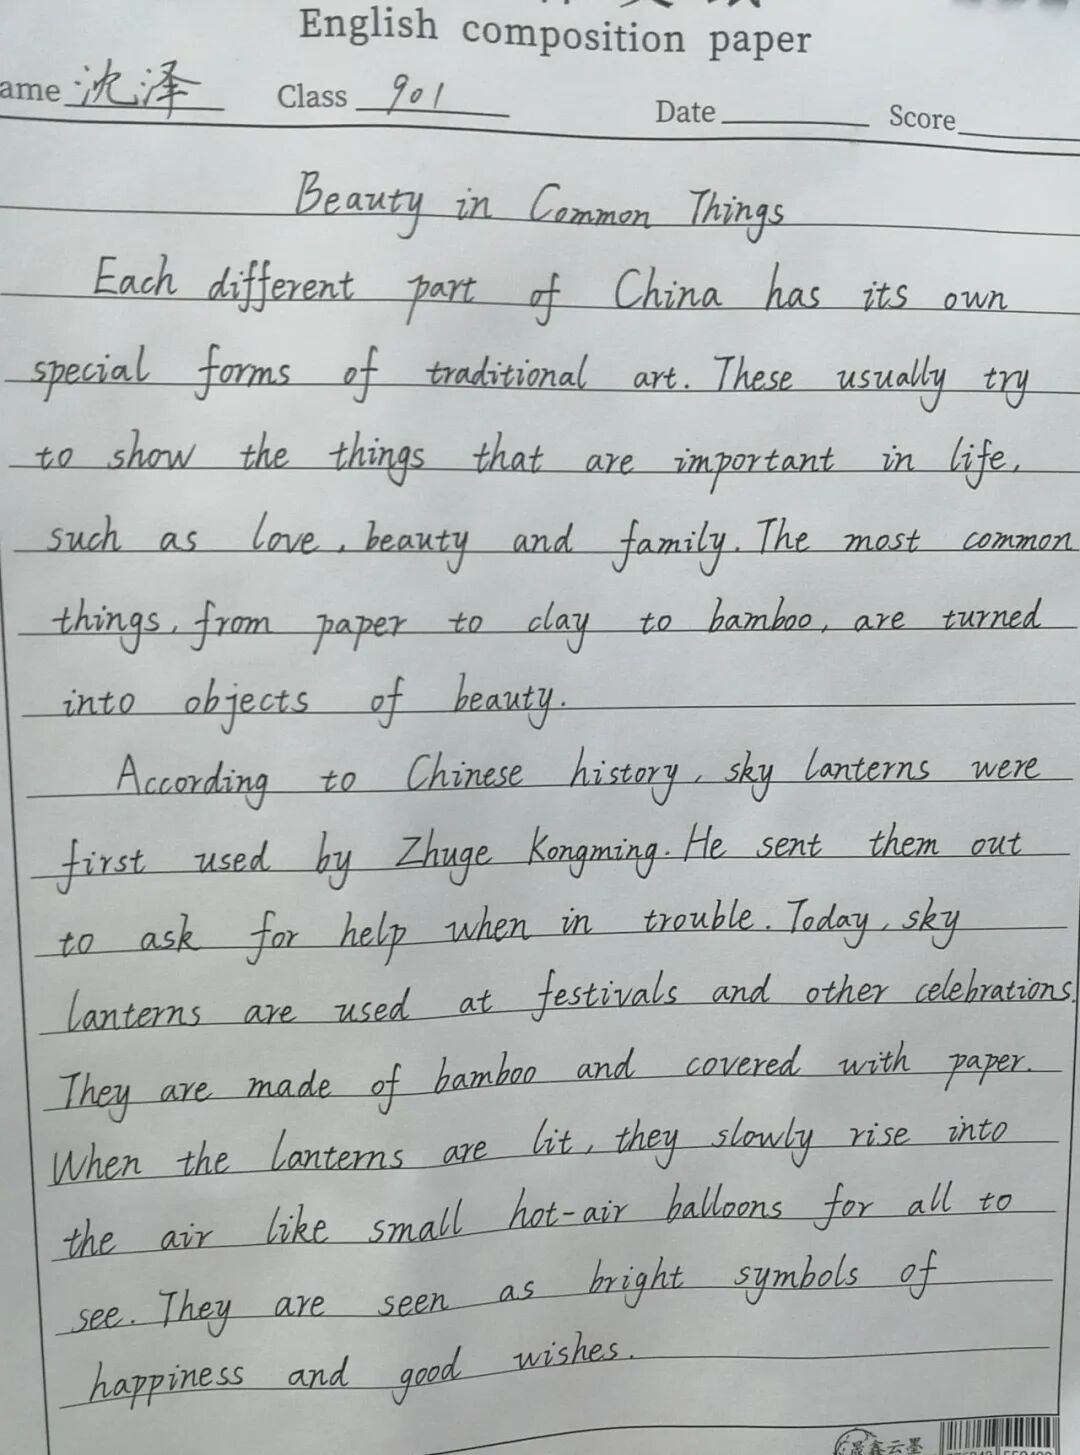 English composition paper
ame 沈泽 Class 901 Date Score
Beauty in Common Things
Each different part of China has its own
special forms of traditional art. These usually try
to show the things that are important in life,
such as love, beauty and family. The most common
things, from paper to clay to bamboo, are turned
into objects of beauty.
According to Chinese history, sky lanterns were
first used by Zhuge Kongming. He sent them out
to ask for help when in trouble. Today, sky
lanterns are used at festivals and other celebrations.
They are made of bamboo and covered with paper.
When the lanterns are lit, they slowly rise into
the air like small hot-air balloons for all to
see. They are seen as bright symbols of
happiness and good wishes.
晨鑫云墨